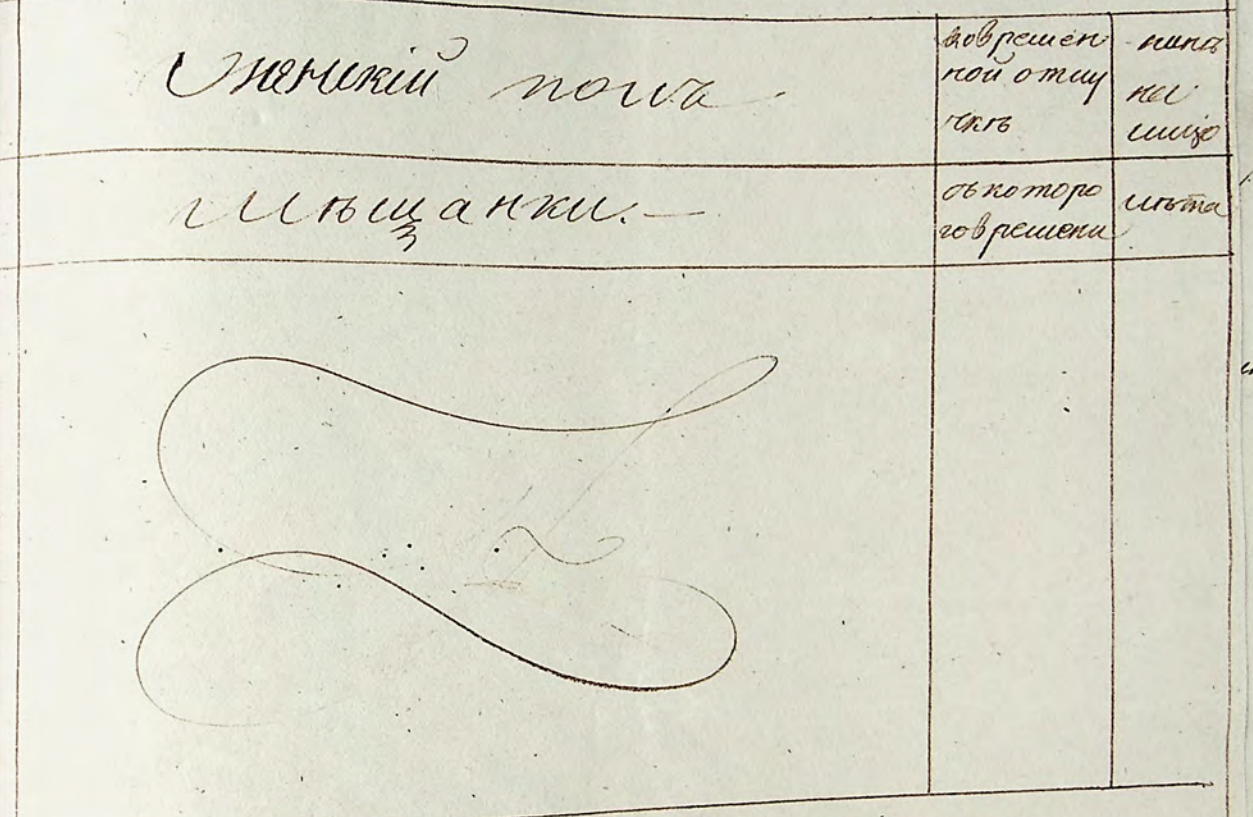 Женскій полъ
вовремен
ной отлу
чкѣ
нынѣ
на
лицо
Мѣщанки. —
съ которо
го времени
лѣта